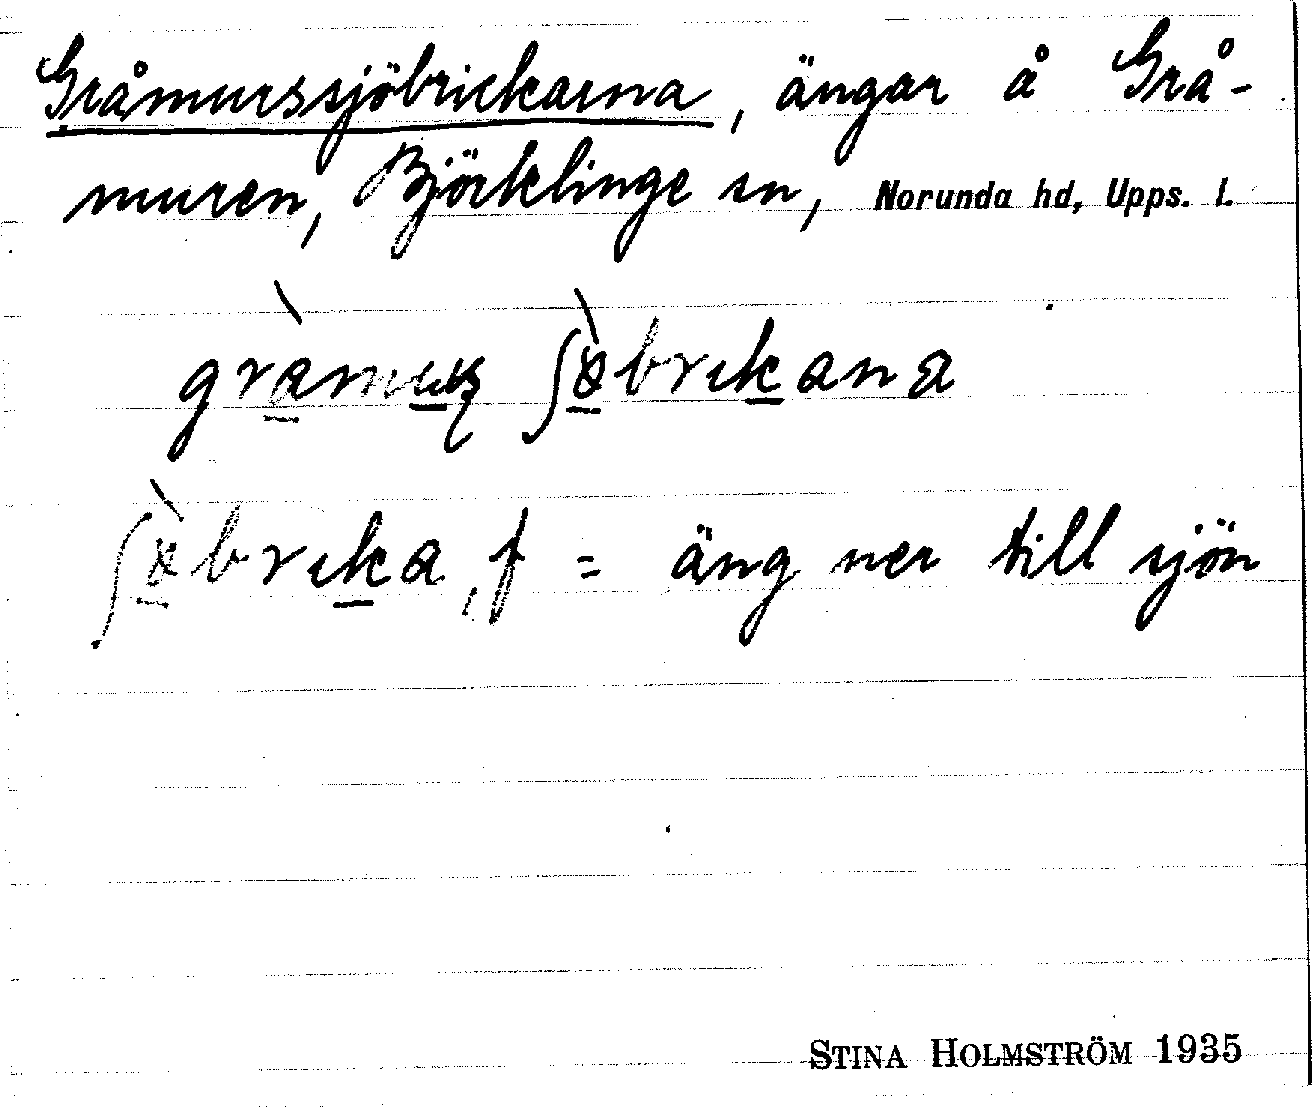 Gråmurssjöbrickarna, ängar å Grå-
muren, Björklinge sn, Norunda hd, Upps. l.
gràmuʂ ʃö̀brɩkana
ʃö̀brɩka, f = äng ner till sjön
STINA HOLMSTRÖM 1935